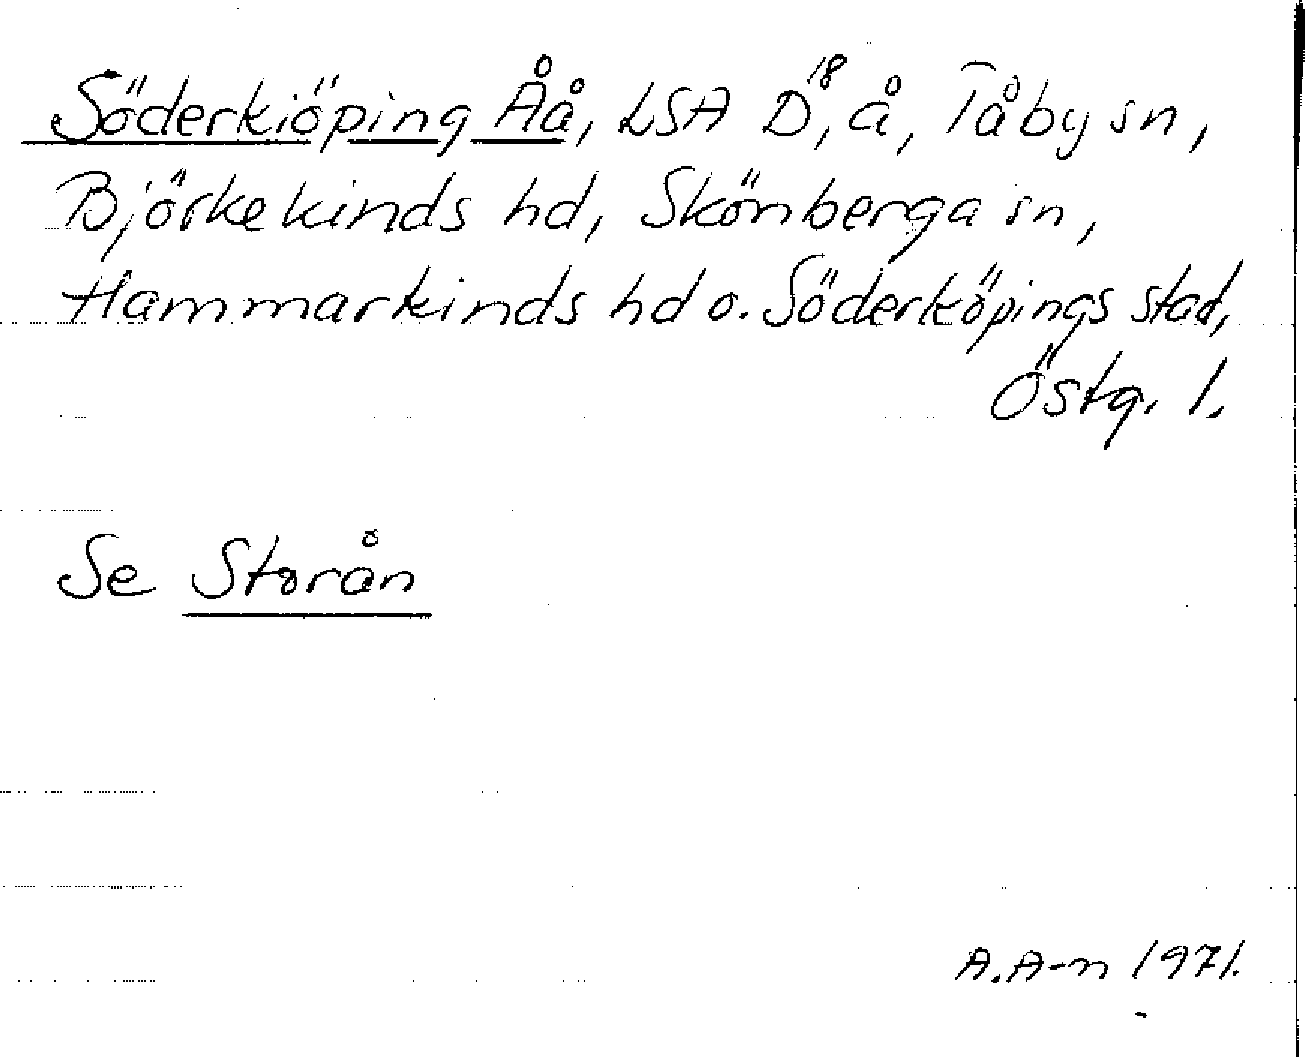 Söderkiöping Åå, LSA D¹⁸, å, Tåby sn,
Björkekinds hd, Skönberga sn,
Hammarkinds hd o. Söderköpings stad,
Östg. l.
Se Storån
A.A-n 1971.